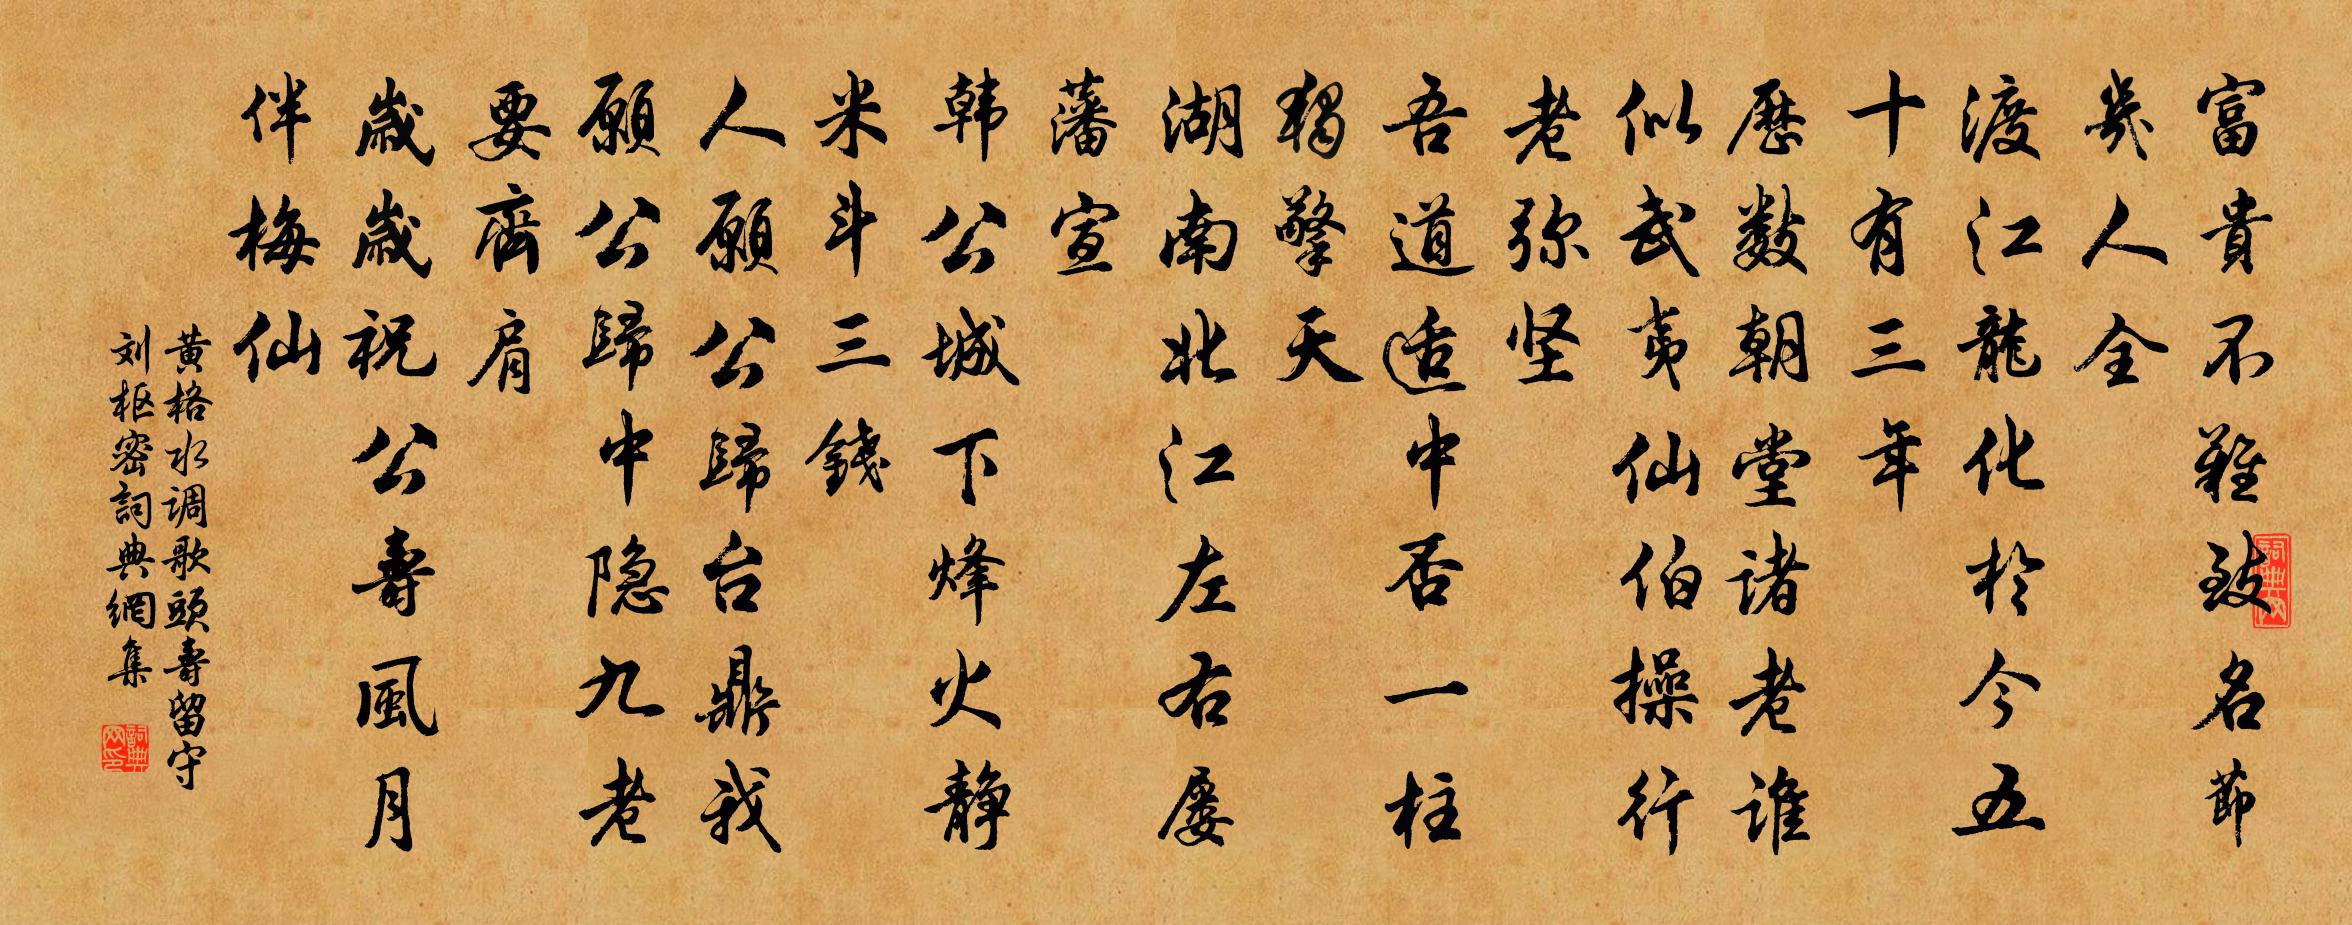 富貴不難致名節
幾人全
渡江龍化於今五
十有三年
歷數朝堂諸老誰
似武夷仙伯操行
老弥坚
吾道适中否一柱
獨擎天
湖南北江左右屡
藩宣
韩公城下烽火静
米斗三錢
人願公歸台鼎我
願公歸中隐九老
要齊肩
歲歲祝公壽風月
伴梅仙
黄格水调歌頭壽留守
刘枢密詞典網集
詞典网
詞典网印